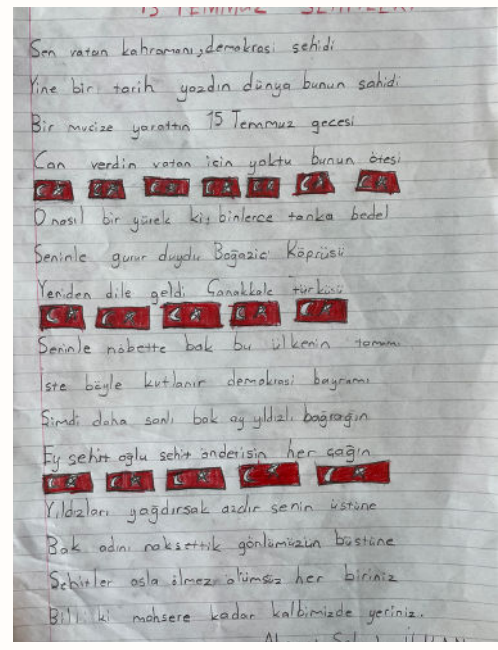 15 TEMMUZ ŞEHİTLERİ
Sen vatan kahramanı, demokrasi şehidi
Yine bir tarih yazdın dünya bunun şahidi
Bir mucize yarattın 15 Temmuz gecesi
Can verdin vatan için yoktu bunun ötesi
O nasıl bir yürek ki, binlerce tanka bedel
Seninle gurur duydu Boğaziçi Köprüsü
Yeniden dile geldi Çanakkale türküsü
Seninle nöbette bak bu ülkenin tamamı
İşte böyle kutlanır demokrasi bayramı
Şimdi daha şanlı bak ay yıldızlı bayrağın
Ey şehit oğlu şehit önderisin her çağın
Yıldızları yağdırsak azdır senin üstüne
Bak adını nakşettik gönlümüzün büstüne
Şehitler asla ölmez ölümsüz her biriniz
Bilin ki mahşere kadar kalbimizde yeriniz.